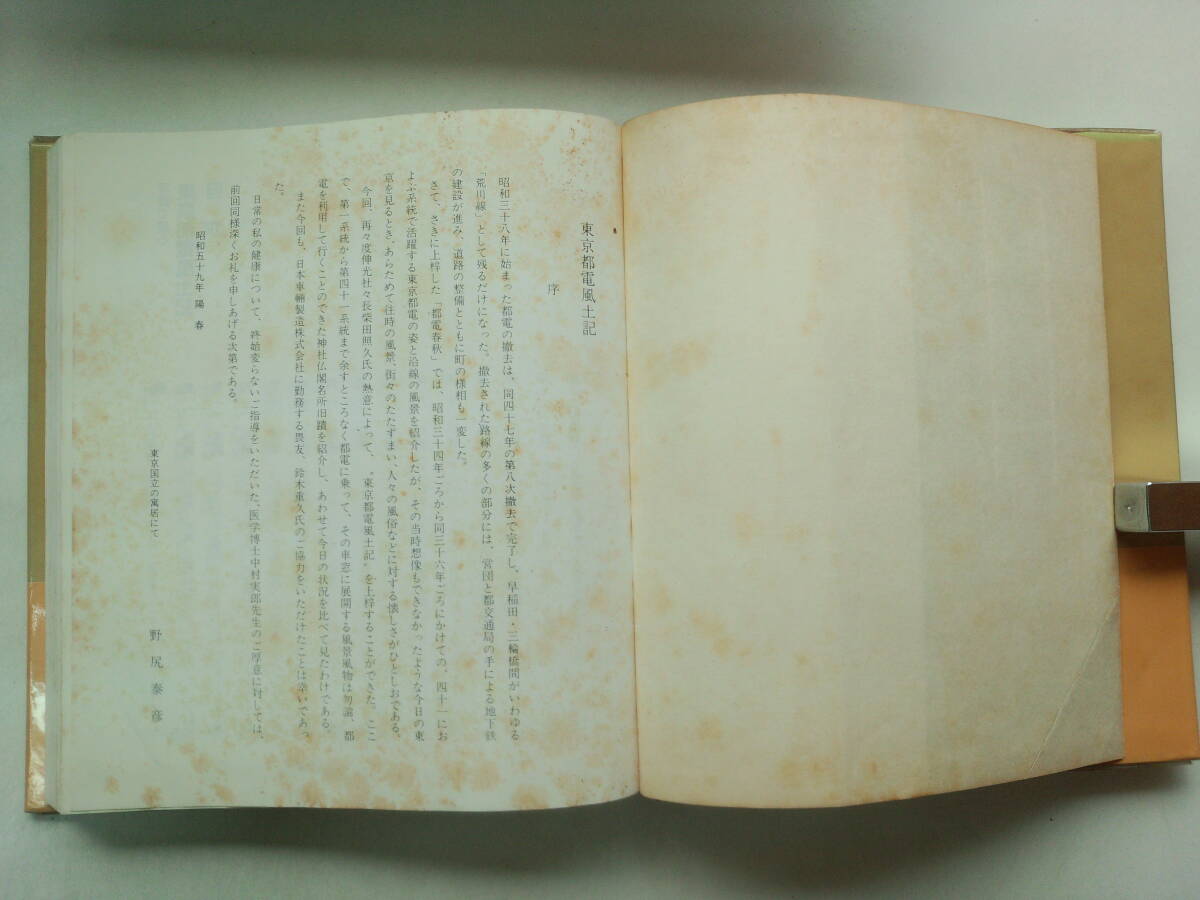 東京都電風土記
序
昭和三十八年に始まった都電の撤去は、同四十七年の第八次撤去で完了し、早稲田・三輪橋間がいわゆる
「荒川線」として残るだけになった。撤去された路線の多くの部分には、営団と都交通局の手による地下鉄
の建設が進み、道路の整備とともに町の様相も一変した。
さて、さきに上梓した「都電春秋」では、昭和三十四年ごろから同三十六年ごろにかけての、四十一にお
よぶ系統で活躍する東京都電の姿と沿線の風景を紹介したが、その当時想像もできなかったような今日の東
京を見るとき、あらためて往時の風景、街々のたたずまい、人々の風俗などに対する懐しさがひとしおである。
今回、再々度伸光社々長柴田照久氏の熱意によって、"東京都電風土記"を上梓することができた。ここ
で、第一系統から第四十一系統まで余すところなく都電に乗って、その車窓に展開する風景風物は勿論、都
電を利用して行くことのできた神社仏閣名所旧蹟を紹介し、あわせて今日の状況を比べて見たわけである。
また今回も、日本車輛製造株式会社に勤務する畏友、鈴木重久氏のご協力をいただけたことは幸いであっ
た。
日常の私の健康について、終始変らないご指導をいただいた、医学博士中村実郎先生のご厚意に対しては、
前回同様深くお礼を申しあげる次第である。
昭和五十九年 陽 春
東京国立の寓居にて
野尻泰彦